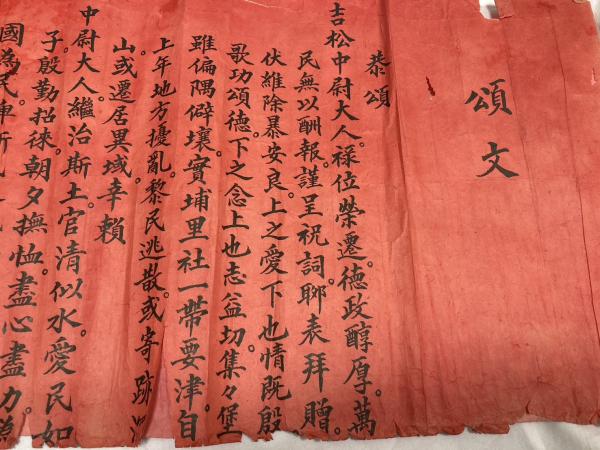 頌文
恭頌
吉松中尉大人。祿位榮遷。德政醇厚。萬
民無以酬報。謹呈祝詞。聊表拜贈。
伏維除暴安良。上之愛下也。情既殷。
歌功頌德。下之念上也。志益切。集々堡
雖偏隅僻壤。實埔里社一帶要津。自
上年地方擾亂。黎民逃散。或寄跡
山。或遷居異域。幸賴
中尉大人。繼治斯土。官清似水。愛民如
子。殷勤招徠。朝夕撫恤。盡心盡力。
國為民